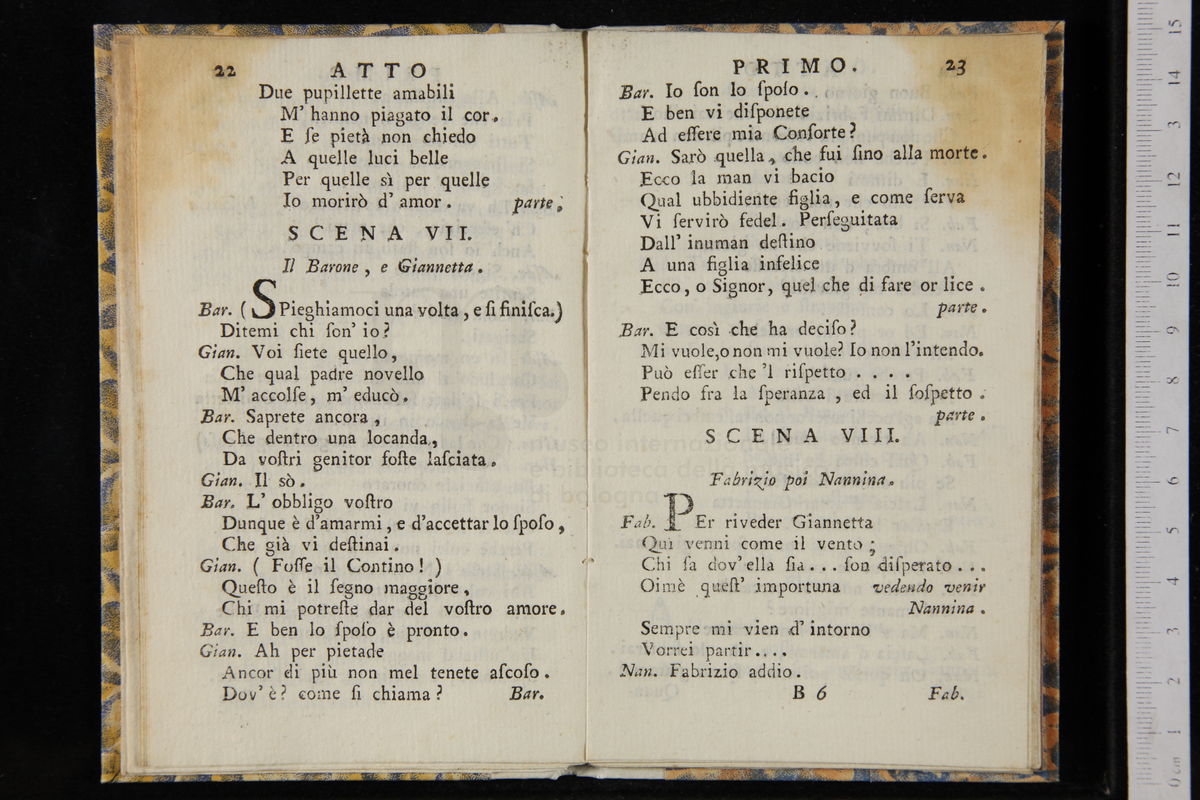 22 ATTO
Due pupillette amabili
M' hanno piagato il cor.
E ſe pietà non chiedo
A quelle luci belle
Per quelle sì per quelle
Io morirò d' amor. parte.
SCENA VII.
Il Barone, e Giannetta.
Bar. (SPieghiamoci una volta, e ſi finiſca.)
Ditemi chi ſon' io?
Gian. Voi ſiete quello,
Che qual padre novello
M' accolſe, m' educò.
Bar. Saprete ancora,
Che dentro una locanda,
Da voſtri genitor foſte laſciata.
Gian. Il sò.
Bar. L' obbligo voſtro
Dunque è d'amarmi, e d'accettar lo ſpoſo,
Che già vi deſtinai.
Gian. ( Foſſe il Contino! )
Queſto è il ſegno maggiore,
Chi mi potreſte dar del voſtro amore.
Bar. E ben lo ſpoſo è pronto.
Gian. Ah per pietade
Ancor di più non mel tenete aſcoſo.
Dov' è? come ſi chiama? Bar.
PRIMO. 23
Bar. Io ſon lo ſpoſo.
E ben vi diſponete
Ad eſſere mia Conſorte?
Gian. Sarò quella, che fui ſino alla morte.
Ecco la man vi bacio
Qual ubbidiente figlia, e come ſerva
Vi ſervirò fedel. Perſeguitata
Dall' inuman deſtino
A una figlia infelice
Ecco, o Signor, quel che di fare or lice.
parte.
Bar. E così che ha deciſo?
Mi vuole, o non mi vuole? Io non l'intendo.
Può eſſer che 'l riſpetto . . . .
Pendo fra la ſperanza, ed il ſoſpetto.
parte.
SCENA VIII.
Fabrizio poi Nannina.
Fab. PEr riveder Giannetta
Qui venni come il vento;
Chi ſa dov' ella ſia... ſon diſperato...
Oimè queſt' importuna vedendo venir
Nannina.
Sempre mi vien d' intorno
Vorrei partir....
Nan. Fabrizio addio.
B 6 Fab.
museo internazionale
e biblioteca della
di bologna